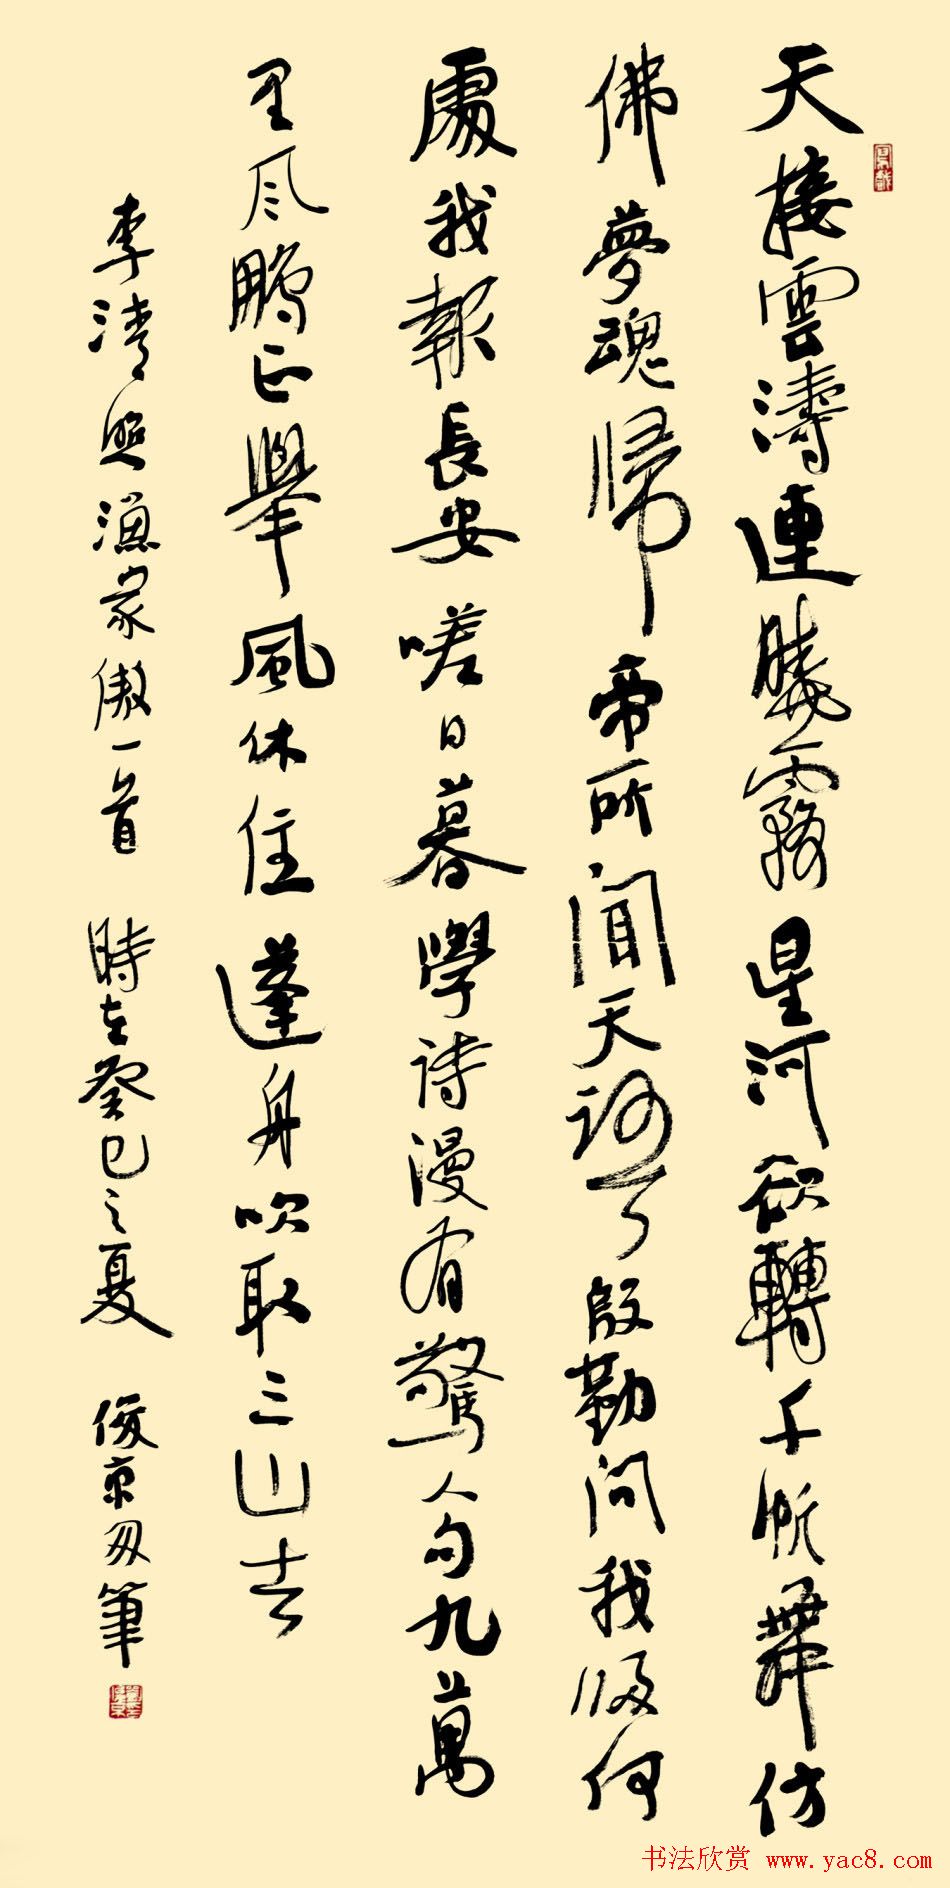 天接雲濤連曉霧星河欲轉千帆舞仿
佛夢魂帰帝所聞天語殷勤問我歸何
處我報長安嗟日暮學詩漫有驚人句九萬
里风鵬正舉風休住蓬舟吹取三山去
李清照漁家傲一首 時在癸巳之夏 俊京筆
书法欣赏 www.yac8.com